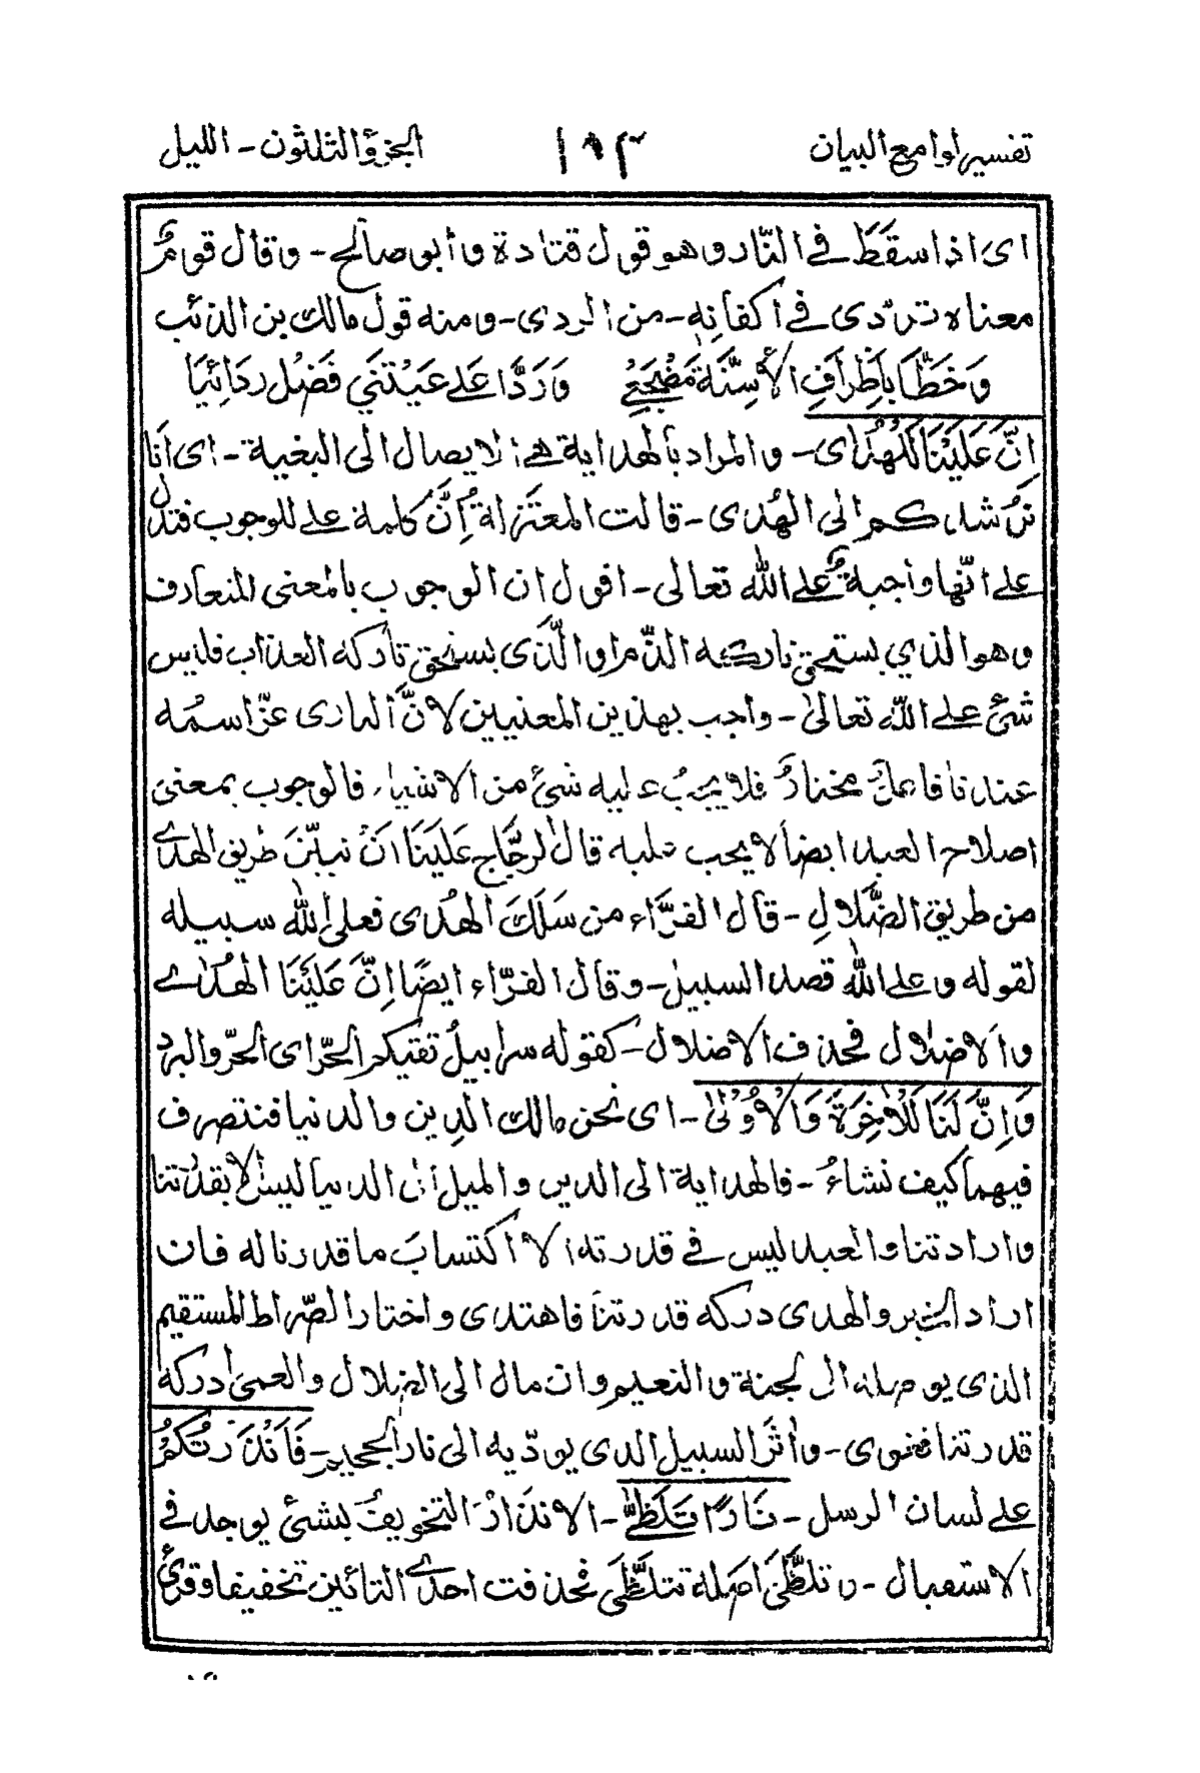 تفسير لوامع البيان ١٩٣ الجزؤ الثلثون - الليل
اى اذا سقَطَ فى النّار وهو قول قتادة وأبو صالح - وقال قومٌ
معناه تردّى فى أكفانِهٖ - من الردى - ومنه قول مالك بن الذئب
وَخَطَّا بِأطْرَافِ الأَسِنَّةِ مَضْجَعِىْ وَرَدَّا عَلٰى عَيْنَيَّ فَضْلَ رِدَائِيَا
اِنَّ عَلَيْنَا لَلْهُدٰى - والمراد بالهداية هى الايصال الى البغية - اى انَا
نرُشدكم الى الهُدى - قالت المعتزلة اِنَّ كلمة على للوجوب فتدل
على انّها واجبةٌ على الله تعالى - اقول ان الوجوب بالمعنى المتعارف
وهو الذي يستحق تاركه الذّم او الّذى يستحق تاركه العذاب فليس
شئ على الله تعالىٰ - واجب بهذين المعنيين لانَّ البارى عزّ اسمُه
عندنا فاعلٌ مختارٌ فلا يجبُ عليه شئ من الاشياء فالوجوب بمعنى
اصلاح العبد ايضا لا يجب عليه قال الزجَّاج عَلَيْنَا انْ نبيّنَ طريق الهدٰى
من طريق الضَّلالِ - قال الفرَّاء من سَلَكَ الهُدى فعلى الله سبيله
لقوله وعلى الله قصد السبيل - وقال الفرّاء ايضًا اِنَّ عَلَيْنَا الهُدٰى
والاضلال فحذف الاضلال - كقوله سرابيلُ تقيكم الحرّ اى الحرّ والبرد
وَاِنَّ لَنَا لَلْاٰخِرَةَ وَالْاُوْلٰى - اى نحن مالك الدين والدنيا فنتصرف
فيهما كيف نشاءُ - فالهداية الى الدين والميل الى الدنيا ليس الا بقدرتنا
وارادتنا والعبد ليس فى قدرته الا اكتسابَ ما قدرنا له فان
اراد الخير والهدى دركه قدرتنا فاهتدى واختار الصّراط المستقيم
الذى يوصله الى الجنة والنعيم وان مال الى الضلال والعمى ادركه
قدرتنا فغوى - وأثَر السبيل الذى يودّيه الى نار الجحيم - فَاَنْذَرْتُكُمْ
على لسان الرسل - نَارًا تَلَظّٰى - الانذارُ التخويفُ بشئ يوجد فى
الاستقبال - وتلظَّىٰ اصله تتلظَّى فحذفت احدى التائين تخفيفا وقرئ